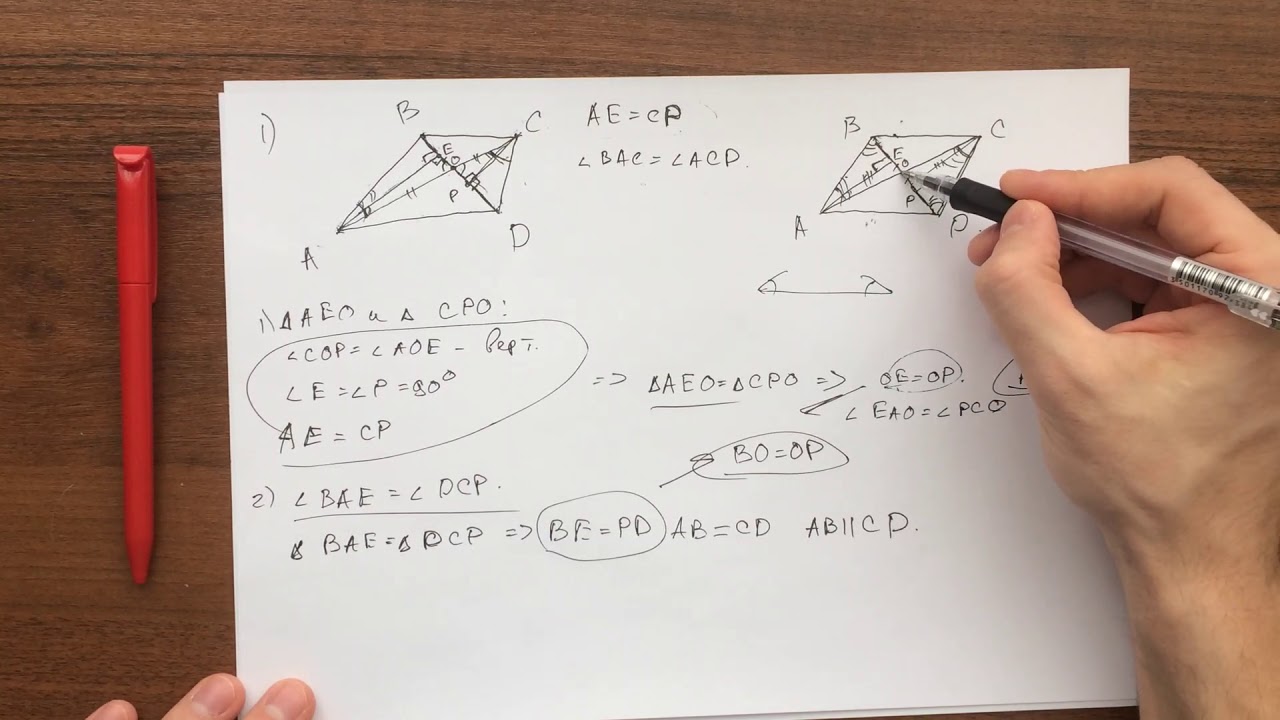 1)
B
C
E
O
P
A
D
AE = CP
∠BAC = ∠ACD.
B
C
E
O
P
A
D
1) △AEO и △ CPO:
∠COP = ∠AOE - верт.
∠E = ∠P = 90°
AE = CP
=> △AEO = △CPO => OE = OP.
∠EAO = ∠PCO
BO = OD
2) ∠BAE = ∠DCP.
△ BAE = △ DCP => BE = PD AB = CD AB || CD.